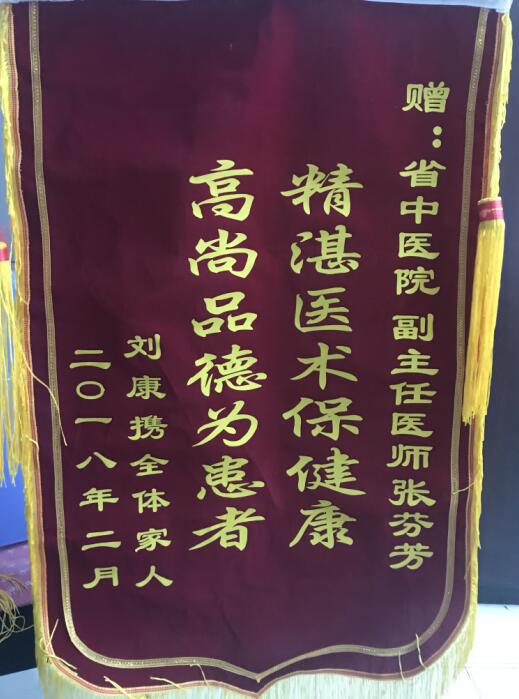 赠：省中医院 副主任医师张芬芳
精湛医术保健康
高尚品德为患者
刘康携全体家人
二〇一八年二月